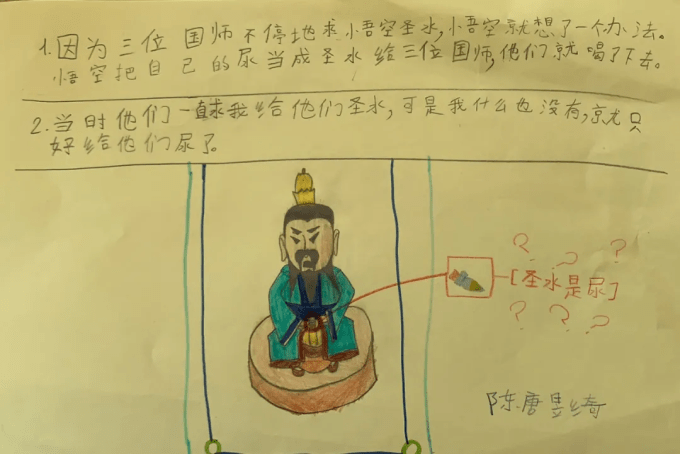 1.因为三位国师不停地求小悟空圣水,小悟空就想了一个办法。
悟空把自己的尿当成圣水给三位国师,他们就喝了下去。
2.当时他们一直求我给他们圣水,可是我什么也没有,就只
好给他们尿了。
? ? ?
[圣水是尿]
? ? ?
陈唐昱绮